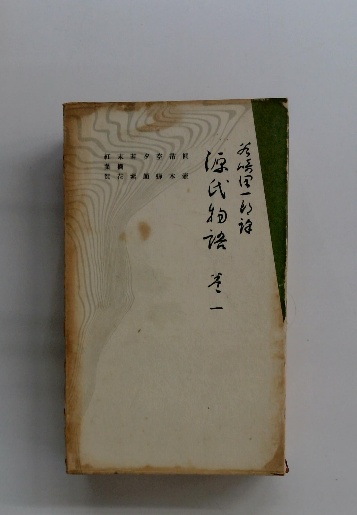 谷崎潤一郎譯
源氏物語 巻一
桐壺
帚木
空蝉
夕顔
若紫
末摘花
紅葉賀